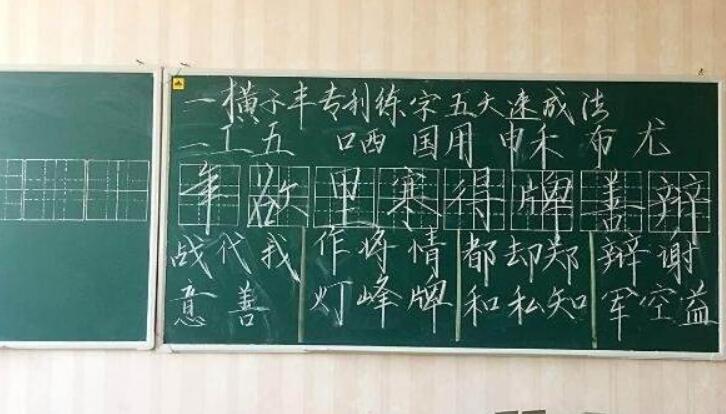 一横子丰专利练字五天速成法
二工五 口西 国用 申禾 布尤
年欲里寒得牌善辩
战代我 作将情 都却郑 辩谢
意善 灯峰牌 和私知 军空益